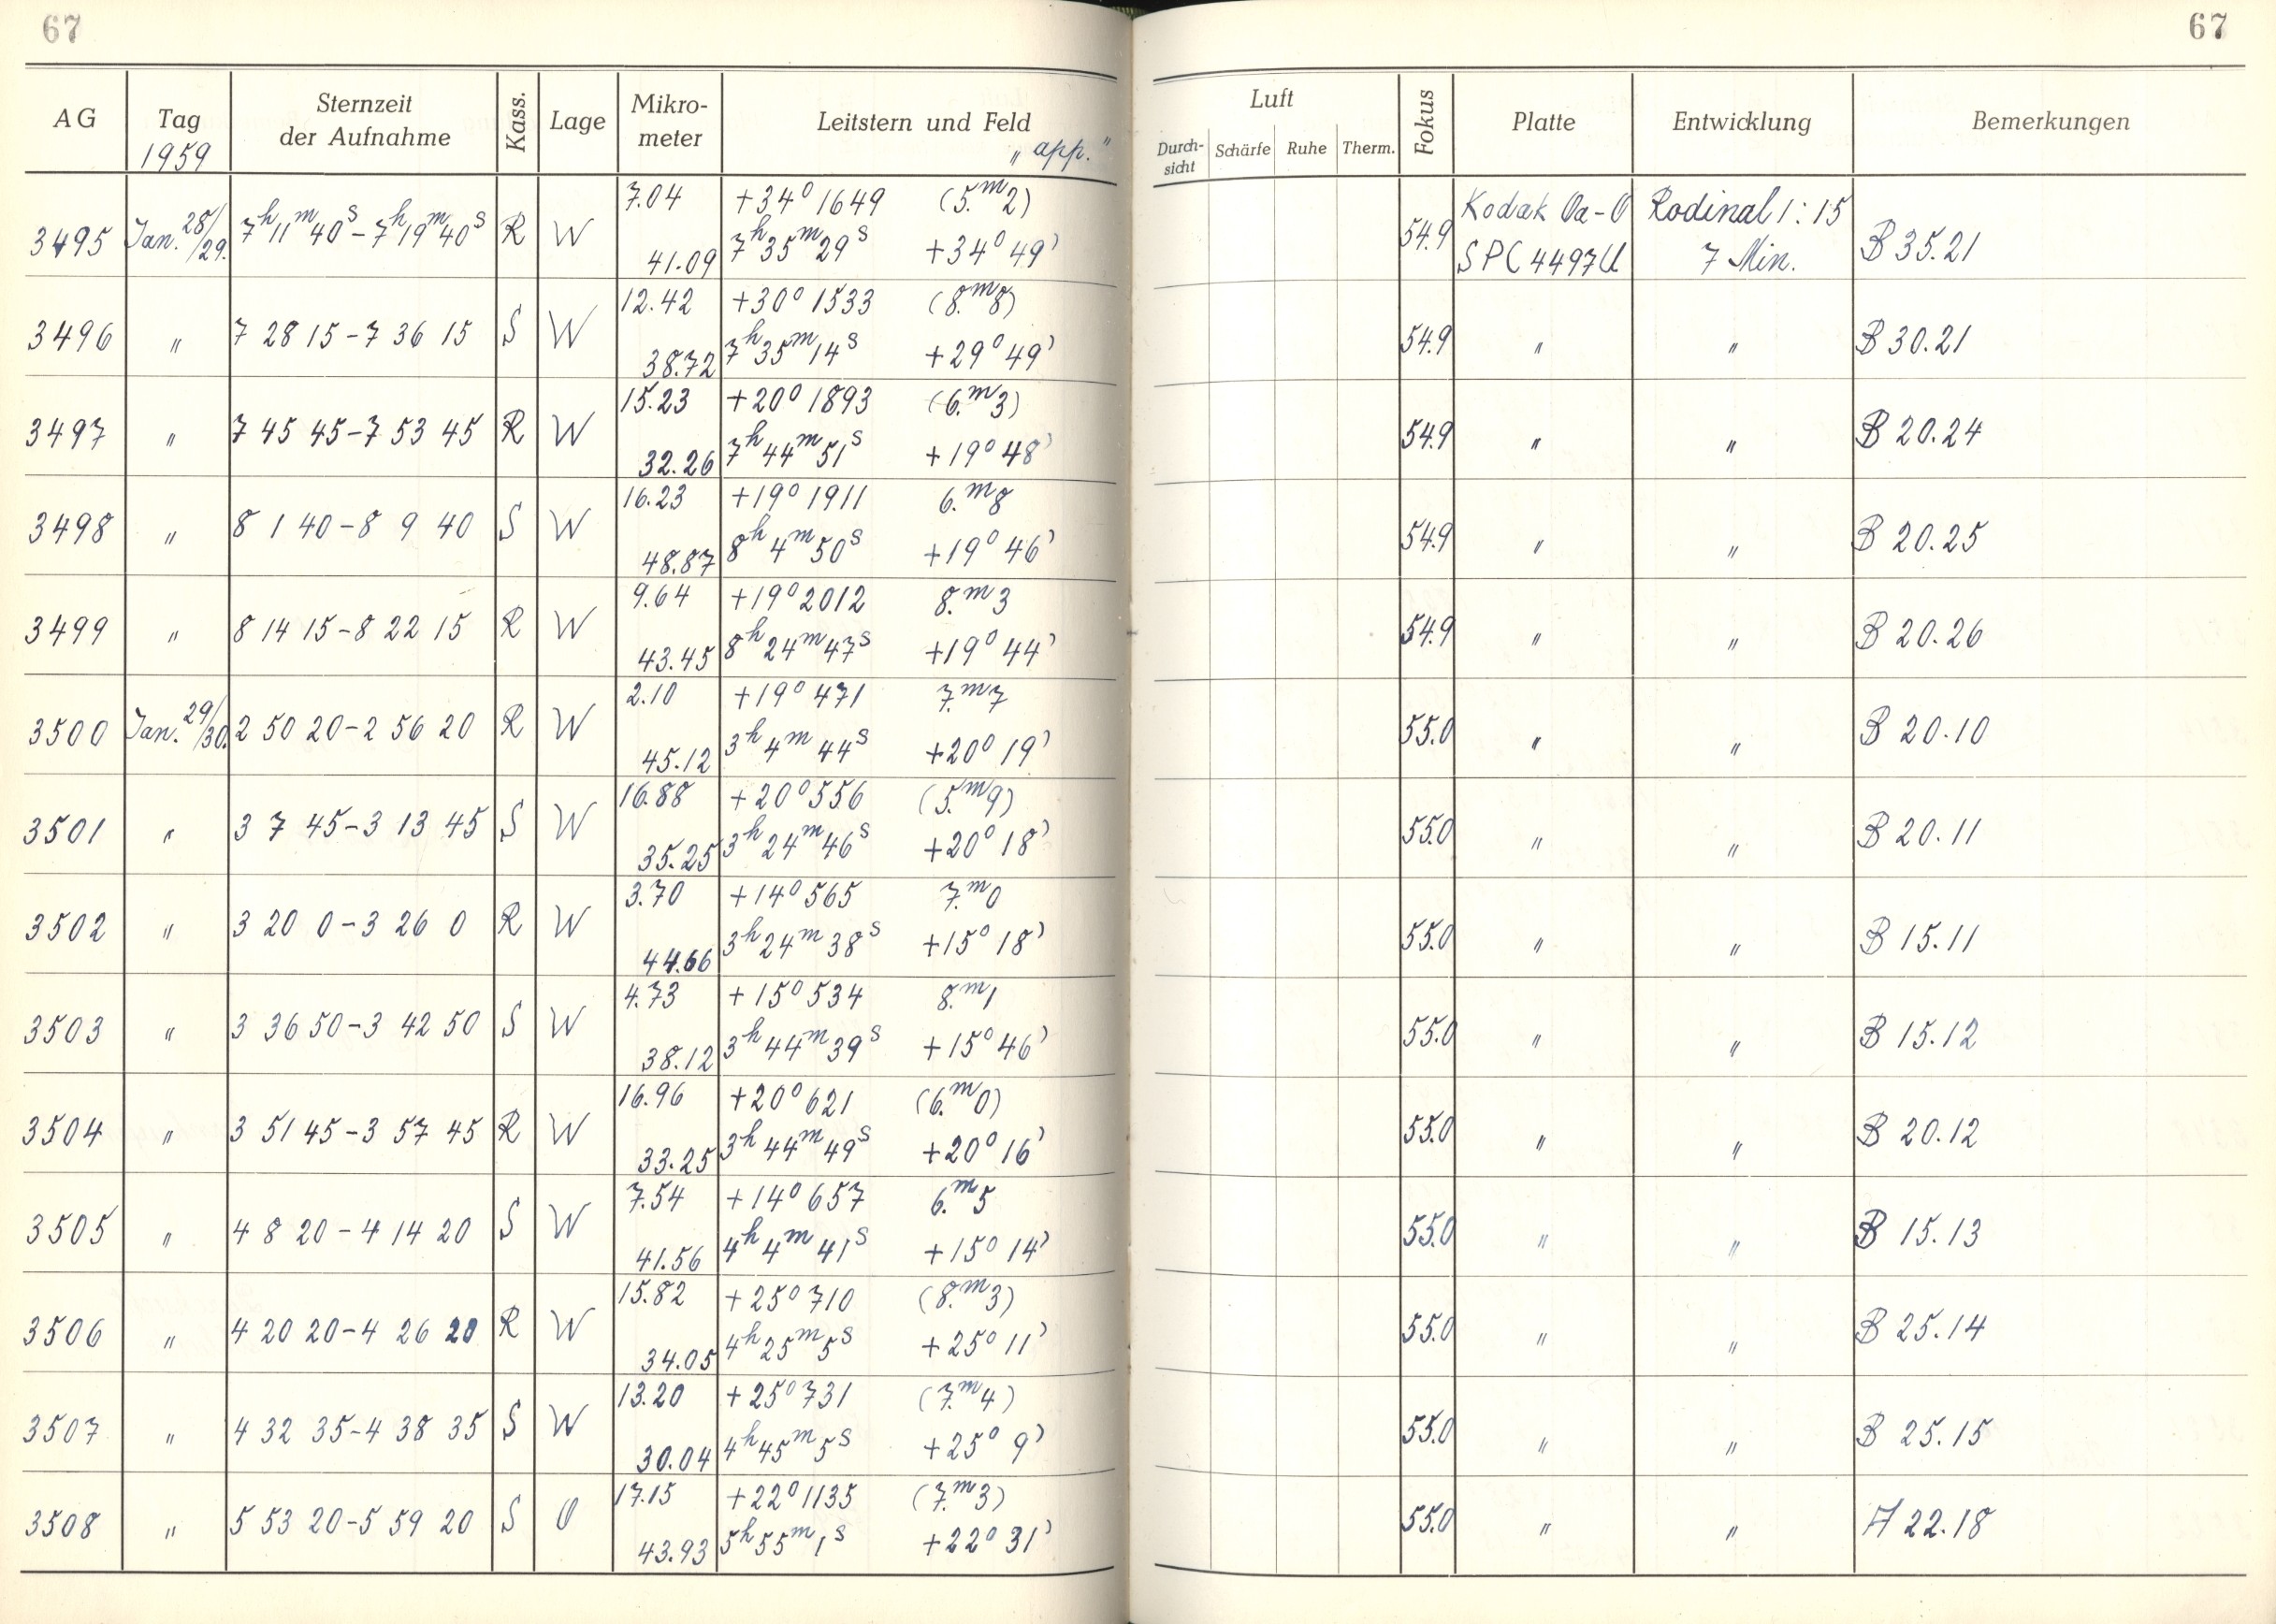 67
67
AG Tag 1959 Sternzeit der Aufnahme Kass. Lage Mikro-meter Leitstern und Feld „app.“ Luft Durch-sicht Schärfe Ruhe Therm. Fokus Platte Entwicklung Bemerkungen
7.04 +34° 1649 (5.ᵐ2) Kodak Oa-O Rodinal 1:15
3495 Jan. 28/29. 7ʰ11ᵐ40ˢ–7ʰ19ᵐ40ˢ R W 54.9 B 35.21
41.09 7ʰ35ᵐ29ˢ +34° 49' SPC 4497U 7 Min.
12.42 +30° 1533 (8.ᵐ8)
3496 " 7 28 15–7 36 15 S W 54.9 " " B 30.21
38.72 7ʰ35ᵐ14ˢ +29° 49'
15.23 +20° 1893 (6.ᵐ3)
3497 " 7 45 45–7 53 45 R W 54.9 " " B 20.24
32.26 7ʰ44ᵐ51ˢ +19° 48'
16.23 +19° 1911 6.ᵐ8
3498 " 8 1 40–8 9 40 S W 54.9 " " B 20.25
48.87 8ʰ4ᵐ50ˢ +19° 46'
9.64 +19° 2012 8.ᵐ3
3499 " 8 14 15–8 22 15 R W 54.9 " " B 20.26
43.45 8ʰ24ᵐ47ˢ +19° 44'
2.10 +19° 471 7.ᵐ7
3500 Jan. 29/30. 2 50 20–2 56 20 R W 55.0 " " B 20.10
45.12 3ʰ4ᵐ44ˢ +20° 19'
16.88 +20° 556 (5.ᵐ9)
3501 " 3 7 45–3 13 45 S W 55.0 " " B 20.11
35.25 3ʰ24ᵐ46ˢ +20° 18'
3.70 +14° 565 7.ᵐ0
3502 " 3 20 0–3 26 0 R W 55.0 " " B 15.11
44.66 3ʰ24ᵐ38ˢ +15° 18'
4.73 +15° 534 8.ᵐ1
3503 " 3 36 50–3 42 50 S W 55.0 " " B 15.12
38.12 3ʰ44ᵐ39ˢ +15° 46'
16.96 +20° 621 (6.ᵐ0)
3504 " 3 51 45–3 57 45 R W 55.0 " " B 20.12
33.25 3ʰ44ᵐ49ˢ +20° 16'
7.54 +14° 657 6.ᵐ5
3505 " 4 8 20–4 14 20 S W 55.0 " " B 15.13
41.56 4ʰ4ᵐ41ˢ +15° 14'
15.82 +25° 710 (8.ᵐ3)
3506 " 4 20 20–4 26 20 R W 55.0 " " B 25.14
34.05 4ʰ25ᵐ5ˢ +25° 11'
13.20 +25° 731 (7.ᵐ4)
3507 " 4 32 35–4 38 35 S W 55.0 " " B 25.15
30.04 4ʰ45ᵐ5ˢ +25° 9'
17.15 +22° 1135 (7.ᵐ3)
3508 " 5 53 20–5 59 20 S O 55.0 " " A 22.18
43.93 5ʰ55ᵐ1ˢ +22° 31'